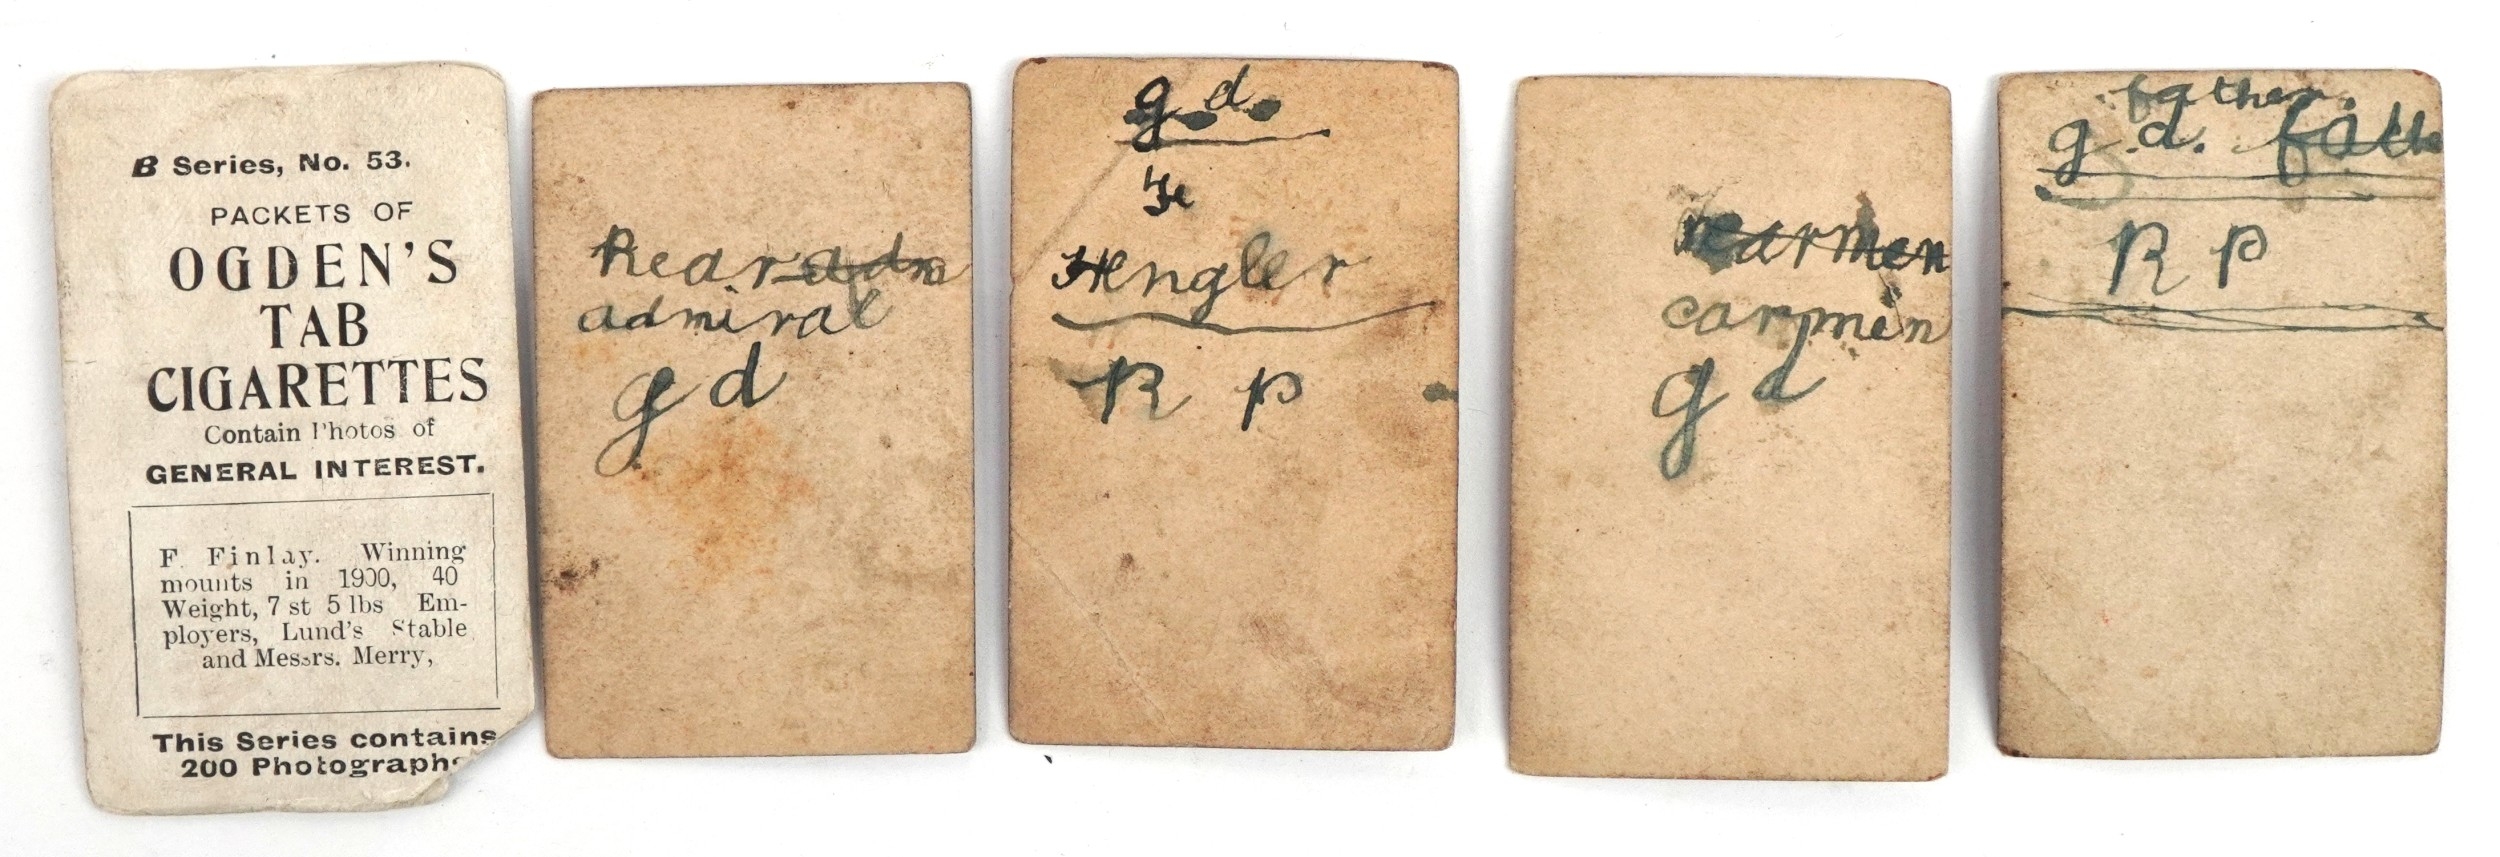 B Series, No. 53.
PACKETS OF
OGDEN'S
TAB
CIGARETTES
Contain Photos of
GENERAL INTEREST.
F. Finlay. Winning
mounts in 1900, 40
Weight, 7 st 5 lbs Em-
ployers, Lund's Stable
and Messrs. Merry,
This Series contains
200 Photographs
Rear adm
admiral
g d
g. d.
He
Hengler
R P
carmen
g d
father.
g. d. fath
R P